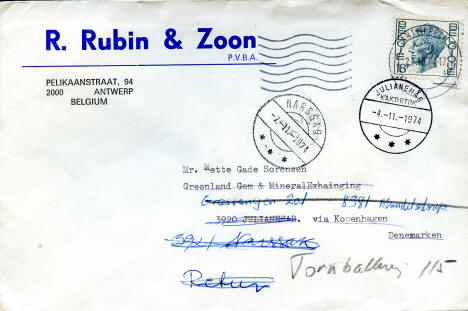 R. Rubin & Zoon
P.V.B.A.
PELIKAANSTRAAT, 94
2000 ANTWERP
BELGIUM
BELGIE
BELGIQUE
NARSSAQ
-7.-11.-1974
JULIANEHÅB
KAKORTOK
-4.-11.-1974
Mr. Mette Gade Sorensen
Greenland Gem & MineralExhainging
201 8381
3920 JULIANEHAB. via Kopenhagen
Denemarken
3921 Narssak
Retur
115